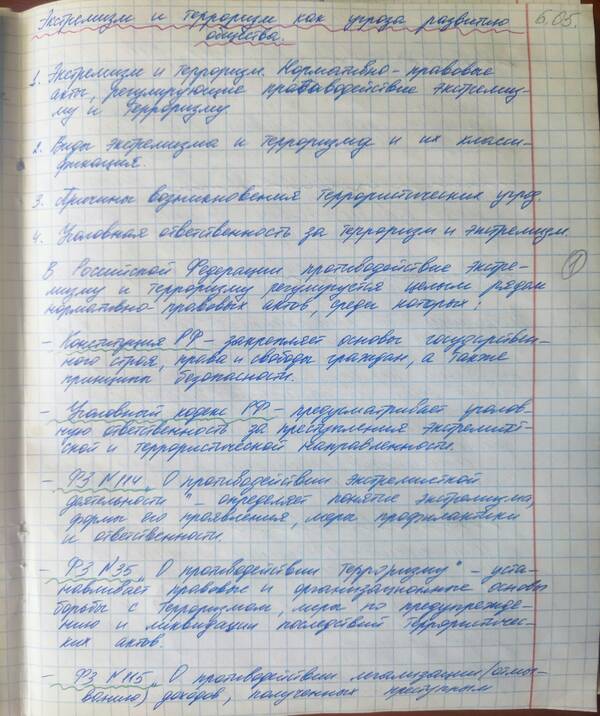 Экстремизм и терроризм как угроза развитию
общества.
6.05.
1. Экстремизм и терроризм. Нормативно-правовые
акты, регулирующие противодействие экстремиз-
му и терроризму.
2. Виды экстремизма и терроризма и их класси-
фикация.
3. Причины возникновения террористических угроз.
4. Уголовная ответственность за терроризм и экстремизм
В Российской Федерации противодействие экстре-
мизму и терроризму регулируется целым рядом
нормативно-правовых актов, среди которых:
1
- Конституция РФ - закрепляет основы государствен-
ного строя, права и свободы граждан, а также
принципы безопасности.
- Уголовный кодекс РФ - предусматривает уголов-
ную ответственность за преступления экстремист-
ской и террористической направленности.
- ФЗ №114 „О противодействии экстремисткой
деятельности" - определяет понятие экстремизма,
формы его проявления, меры профилактики
и ответственности.
- ФЗ №35 „О противодействии терроризму" - уста-
навливает правовые и организационные основы
борьбы с терроризмом, меры по предупрежде-
нию и ликвидации последствий террористичес-
ких актов.
- ФЗ №115 „О противодействии легализации (отмы-
ванию) доходов, полученных преступным